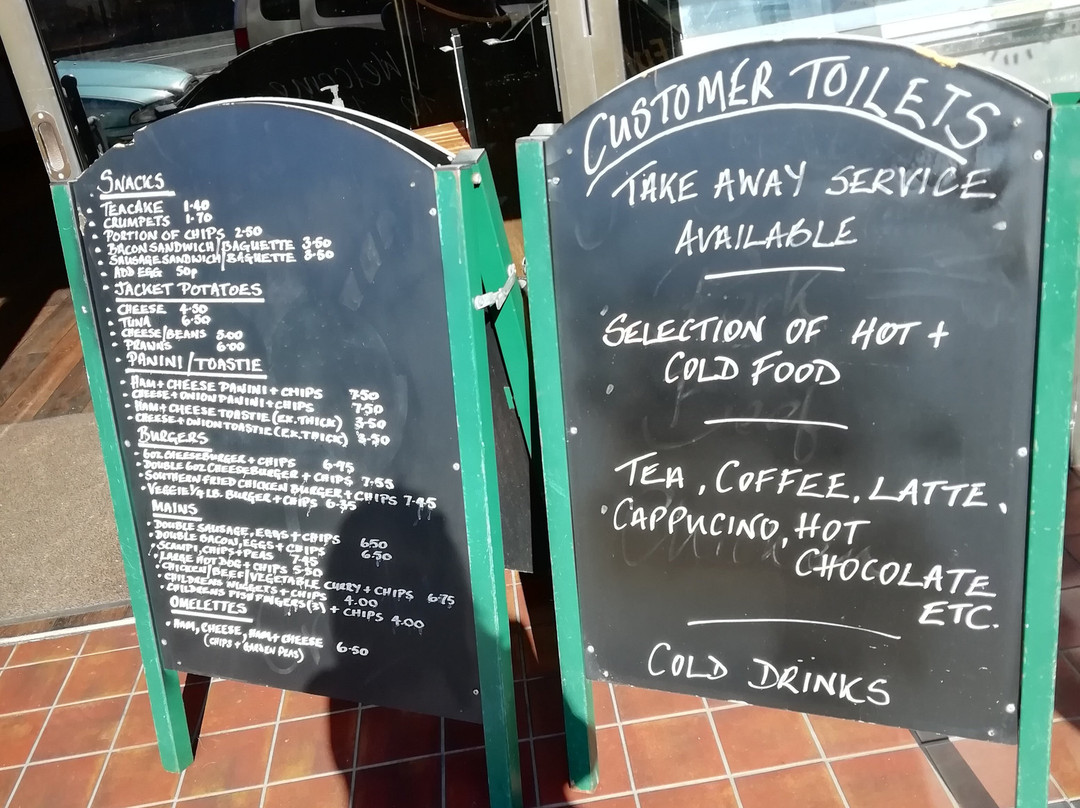 SNACKS
• TEACAKE 1·40
• CRUMPETS 1·70
• PORTION OF CHIPS 2·50
• BACON SANDWICH/BAGUETTE 3·50
• SAUSAGE SANDWICH/BAGUETTE 3·50
• ADD EGG 50p
JACKET POTATOES
• CHEESE 4·50
• TUNA 6·50
• CHEESE/BEANS 5·00
• PRAWNS 6·00
PANINI/TOASTIE
• HAM + CHEESE PANINI + CHIPS 7·50
• CHEESE + ONION PANINI + CHIPS 7·50
• HAM + CHEESE TOASTIE (EX.THICK) 3·50
• CHEESE + ONION TOASTIE (EX.THICK) 3·50
BURGERS
• 6OZ CHEESEBURGER + CHIPS 6·95
• DOUBLE 6OZ CHEESEBURGER + CHIPS 7·95
• SOUTHERN FRIED CHICKEN BURGER + CHIPS 7·95
• VEGGIE 1/4 LB. BURGER + CHIPS 6·35
MAINS
• DOUBLE SAUSAGE, EGGS + CHIPS 6·50
• DOUBLE BACON, EGGS + CHIPS 6·50
• SCAMPI, CHIPS + PEAS 7·95
• LARGE HOT DOG + CHIPS 5·50
• CHICKEN/BEEF/VEGETABLE CURRY + CHIPS 6·75
• CHILDRENS NUGGETS + CHIPS 4.00
• CHILDRENS FISH FINGERS (3) + CHIPS 4.00
OMELETTES
• HAM, CHEESE, HAM + CHEESE 6·50
(CHIPS + GARDEN PEAS)
CUSTOMER TOILETS
TAKE AWAY SERVICE
AVAILABLE
SELECTION OF HOT +
COLD FOOD
TEA, COFFEE, LATTE,
CAPPUCINO, HOT
CHOCOLATE
ETC.
COLD DRINKS